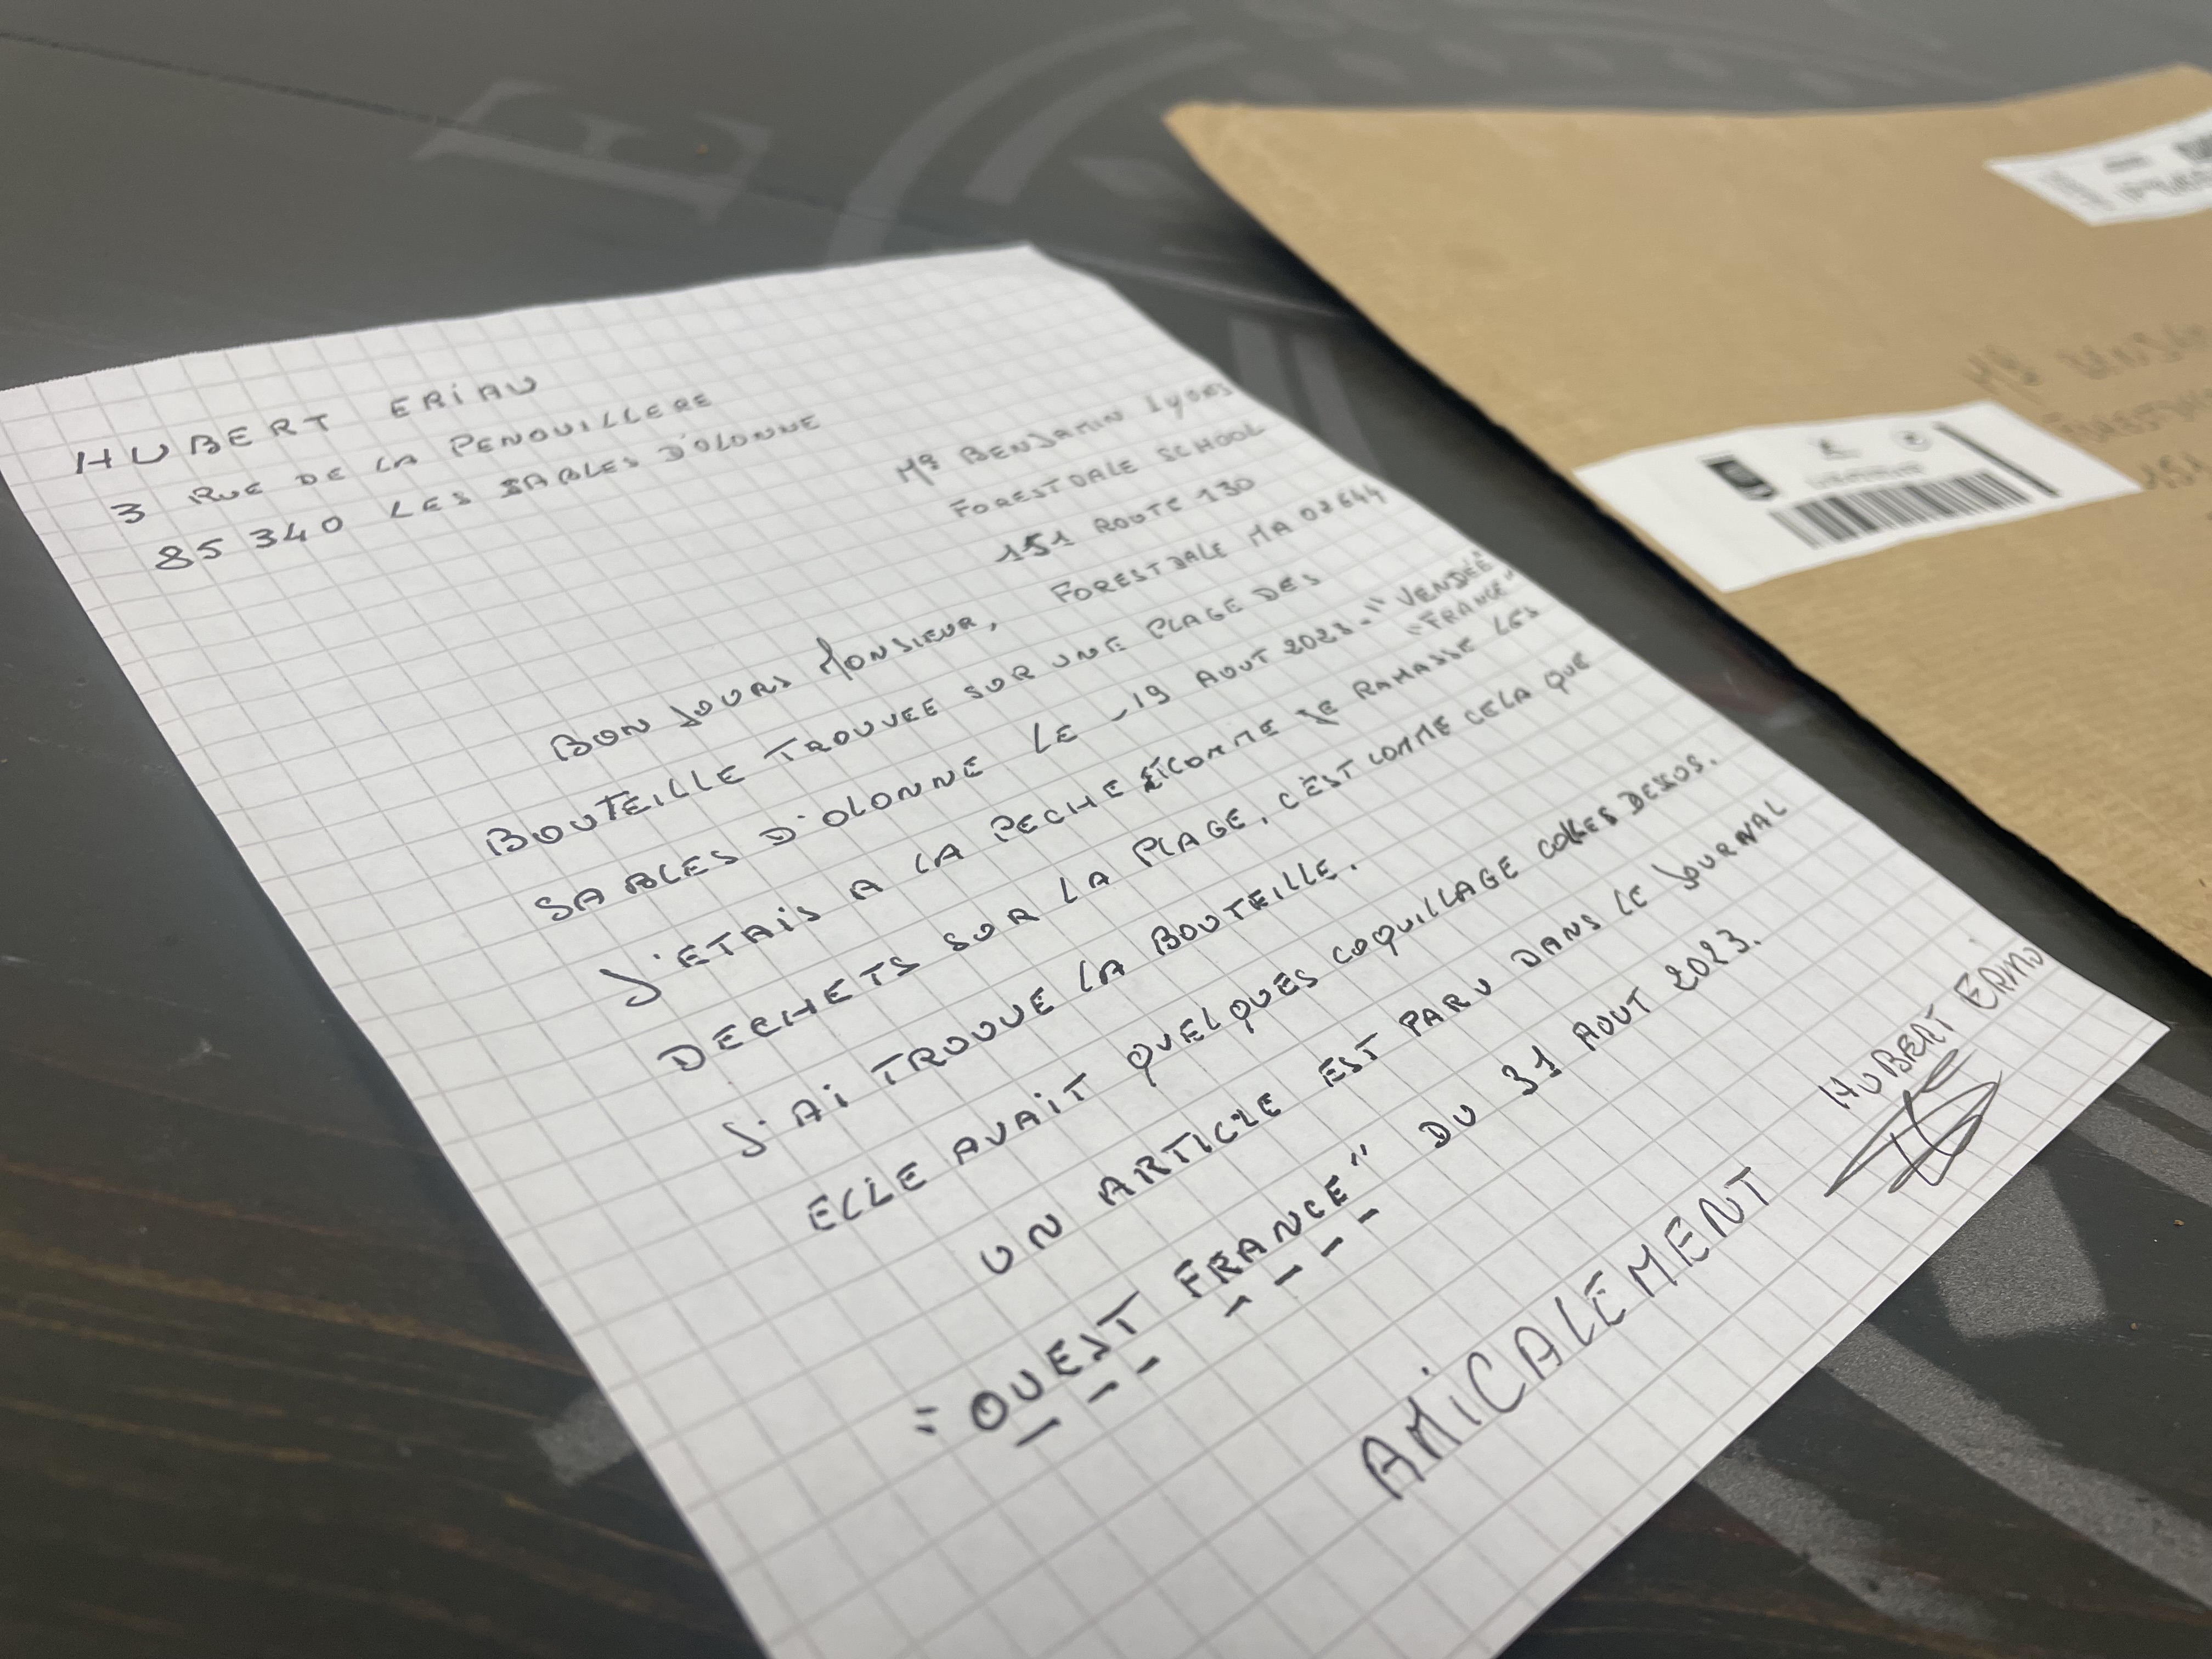 HUBERT ERIAU
3 RUE DE LA PENOUILLERE
85 340 LES SABLES D'OLONNE
Mr BENJAMIN Lyons
FORESTDALE SCHOOL
151 ROUTE 130
FORESTDALE MA 02644
BON JOURS MONSIEUR,
BOUTEILLE TROUVEE SUR UNE PLAGE DES
SABLES D'OLONNE LE -19 AOUT 2023-"VENDÉE"
"FRANCE"
J'ETAIS A LA PECHE ET COMME JE RAMASSE LES
DECHETS SUR LA PLAGE, C'EST COMME CELA QUE
J'AI TROUVE LA BOUTEILLE.
ELLE AVAIT QUELQUES COQUILLAGE COLLES DESSUS.
UN ARTICLE EST PARU DANS LE JOURNAL
"OUEST FRANCE" DU 31 AOUT 2023.
HUBERT ERIAU
AMICALEMENT
E
151